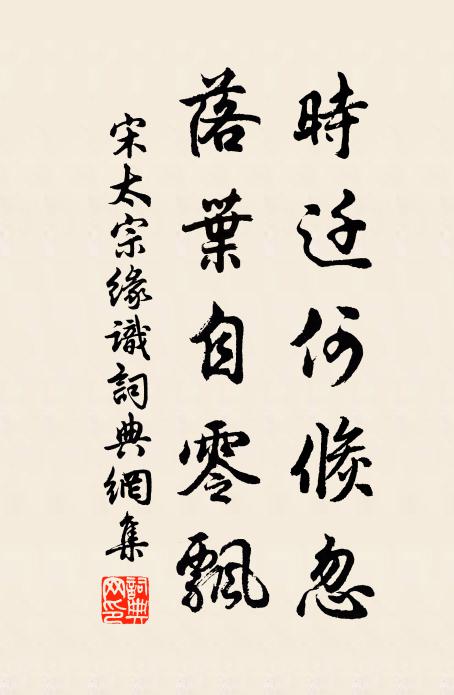 時迁何倐忽
落葉自零飄
宋太宗緣識詞典網集
詞典网印